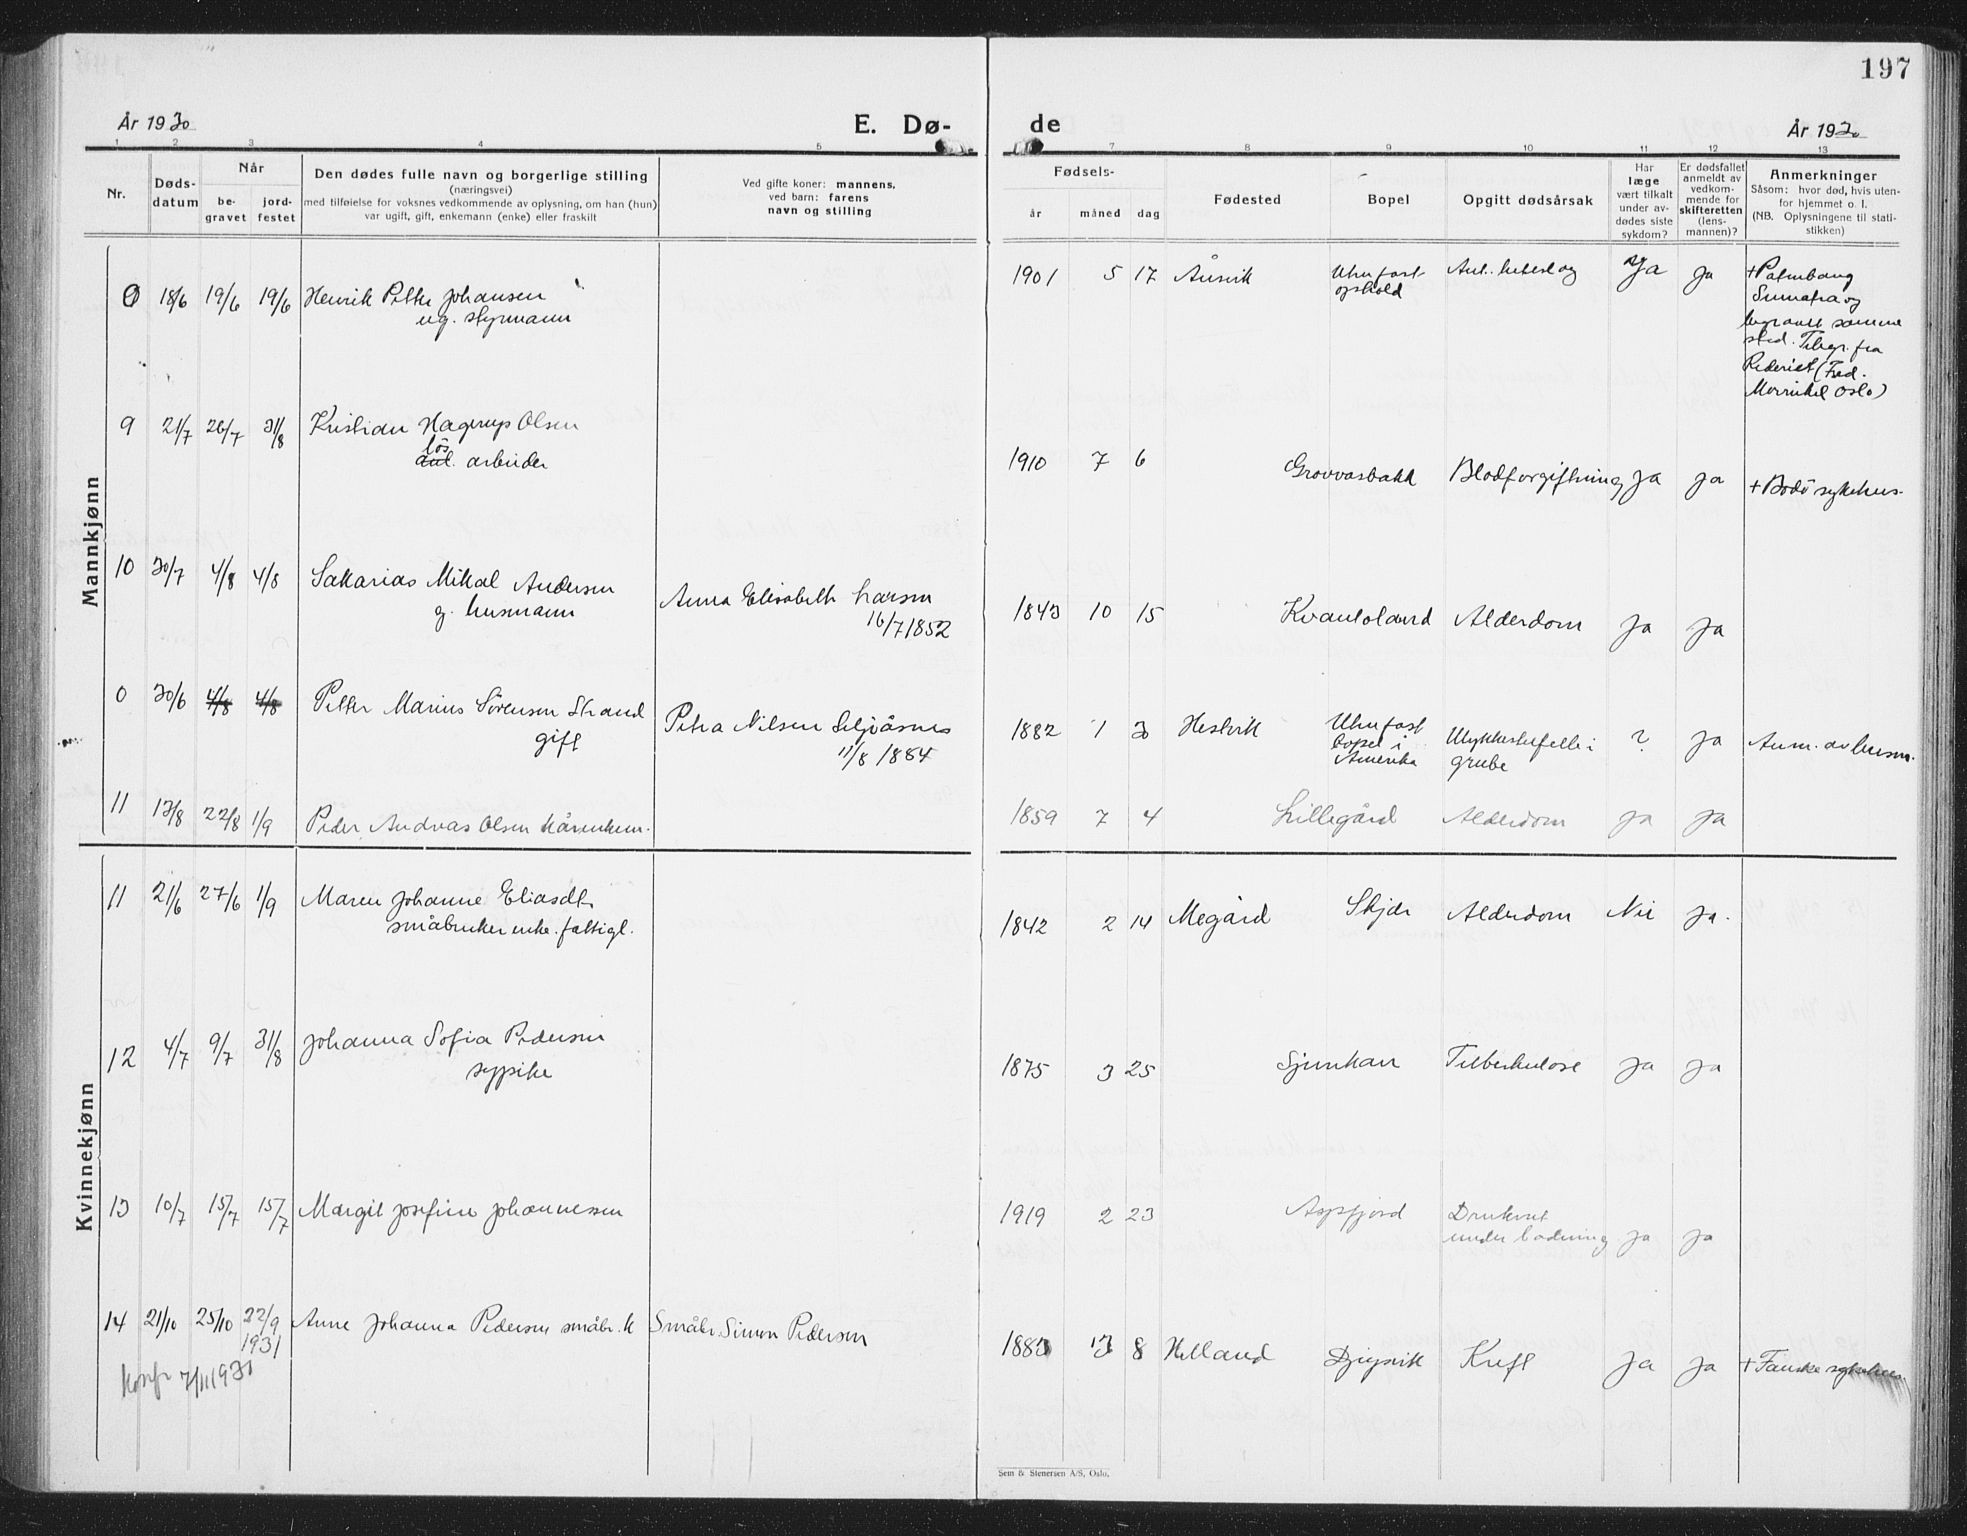 197
År 1930
E. Dø-
de
År 1930
1 2 3 4 5 7 8 9 10 11 12 13
Nr.
Døds-
datum
Når
be-
gravet
jord-
festet
Den dødes fulle navn og borgerlige stilling
(næringsvei)
med tilføielse for voksnes vedkommende av oplysning, om han (hun)
var ugift, gift, enkemann (enke) eller fraskilt
Ved gifte koner: mannens,
ved barn: farens
navn og stilling
Fødsels-
år måned dag
Fødested
Bopel
Opgitt dødsårsak
Har
læge
vært tilkalt
under av-
dødes siste
sykdom?
Er dødsfallet
anmeldt av
vedkom-
mende for
skifteretten
(lens-
mannen)?
Anmerkninger
Såsom: hvor død, hvis uten-
for hjemmet o. l.
(NB. Oplysningene til stati-
stikken)
Mannkjønn
0 18/6 19/6 19/6 Henrik Petter Johansen
ug. styrmann
1901 5 17 Ånsvik
Uten fast
opshold
Ja Ja
+ Palembang
Sumatra og
begravet samme
sted. Telegr. fra
Rederiet (Fred.
Oslo)
9 21/7 26/7 31/8 Kristian Hagerup Olsen
løs
arbeider
1910 7 6 Grovvasbakk Blodforgiftning Ja Ja + Bodö sykehus
10 30/7 4/8 4/8 Sakarias Mikal Andersen
g. husmann
Anna Elisabeth Larsen
16/7 1852
1843 10 15 Kvantoland Alderdom Ja Ja
0 30/6 4/8 4/8 Petter Marius Sörensen Strand
gift
Petra Nilsen Seljåsnes
11/8 1884
1882 1 3 Hestvik
Uten fast
bopel i
Amerika
Ulykkestilfelle i
grube
? Ja
11 13/8 22/8 1/9 Peder Andreas Olsen kårenkem.
1859 7 4 Lillegård Alderdom Ja Ja
Kvinnekjønn
11 21/6 27/6 1/9 Maren Johanne Eliasdtr
småbruker enke. fattigl.
1842 2 14 Megård Skjdr Alderdom Nei Ja.
12 4/7 9/7 31/8 Johanna Sofia Pedersen
sypike
1875 3 25 Sjunkan Tuberkulose Ja Ja
13 10/7 15/7 15/7 Margit Josefine Johannessen
1919 2 23 Aspfjord
Druknet
under badning
Ja Ja
14 21/10 25/10 22/9
1931
Anne Johanna Pedersen småbr. k
Småbr. Simon Pedersen
1883 8 Helland Djupvik Kreft Ja Ja + Fauske sykehus
7/11 1930
Sem & Stenersen A/S, Oslo.